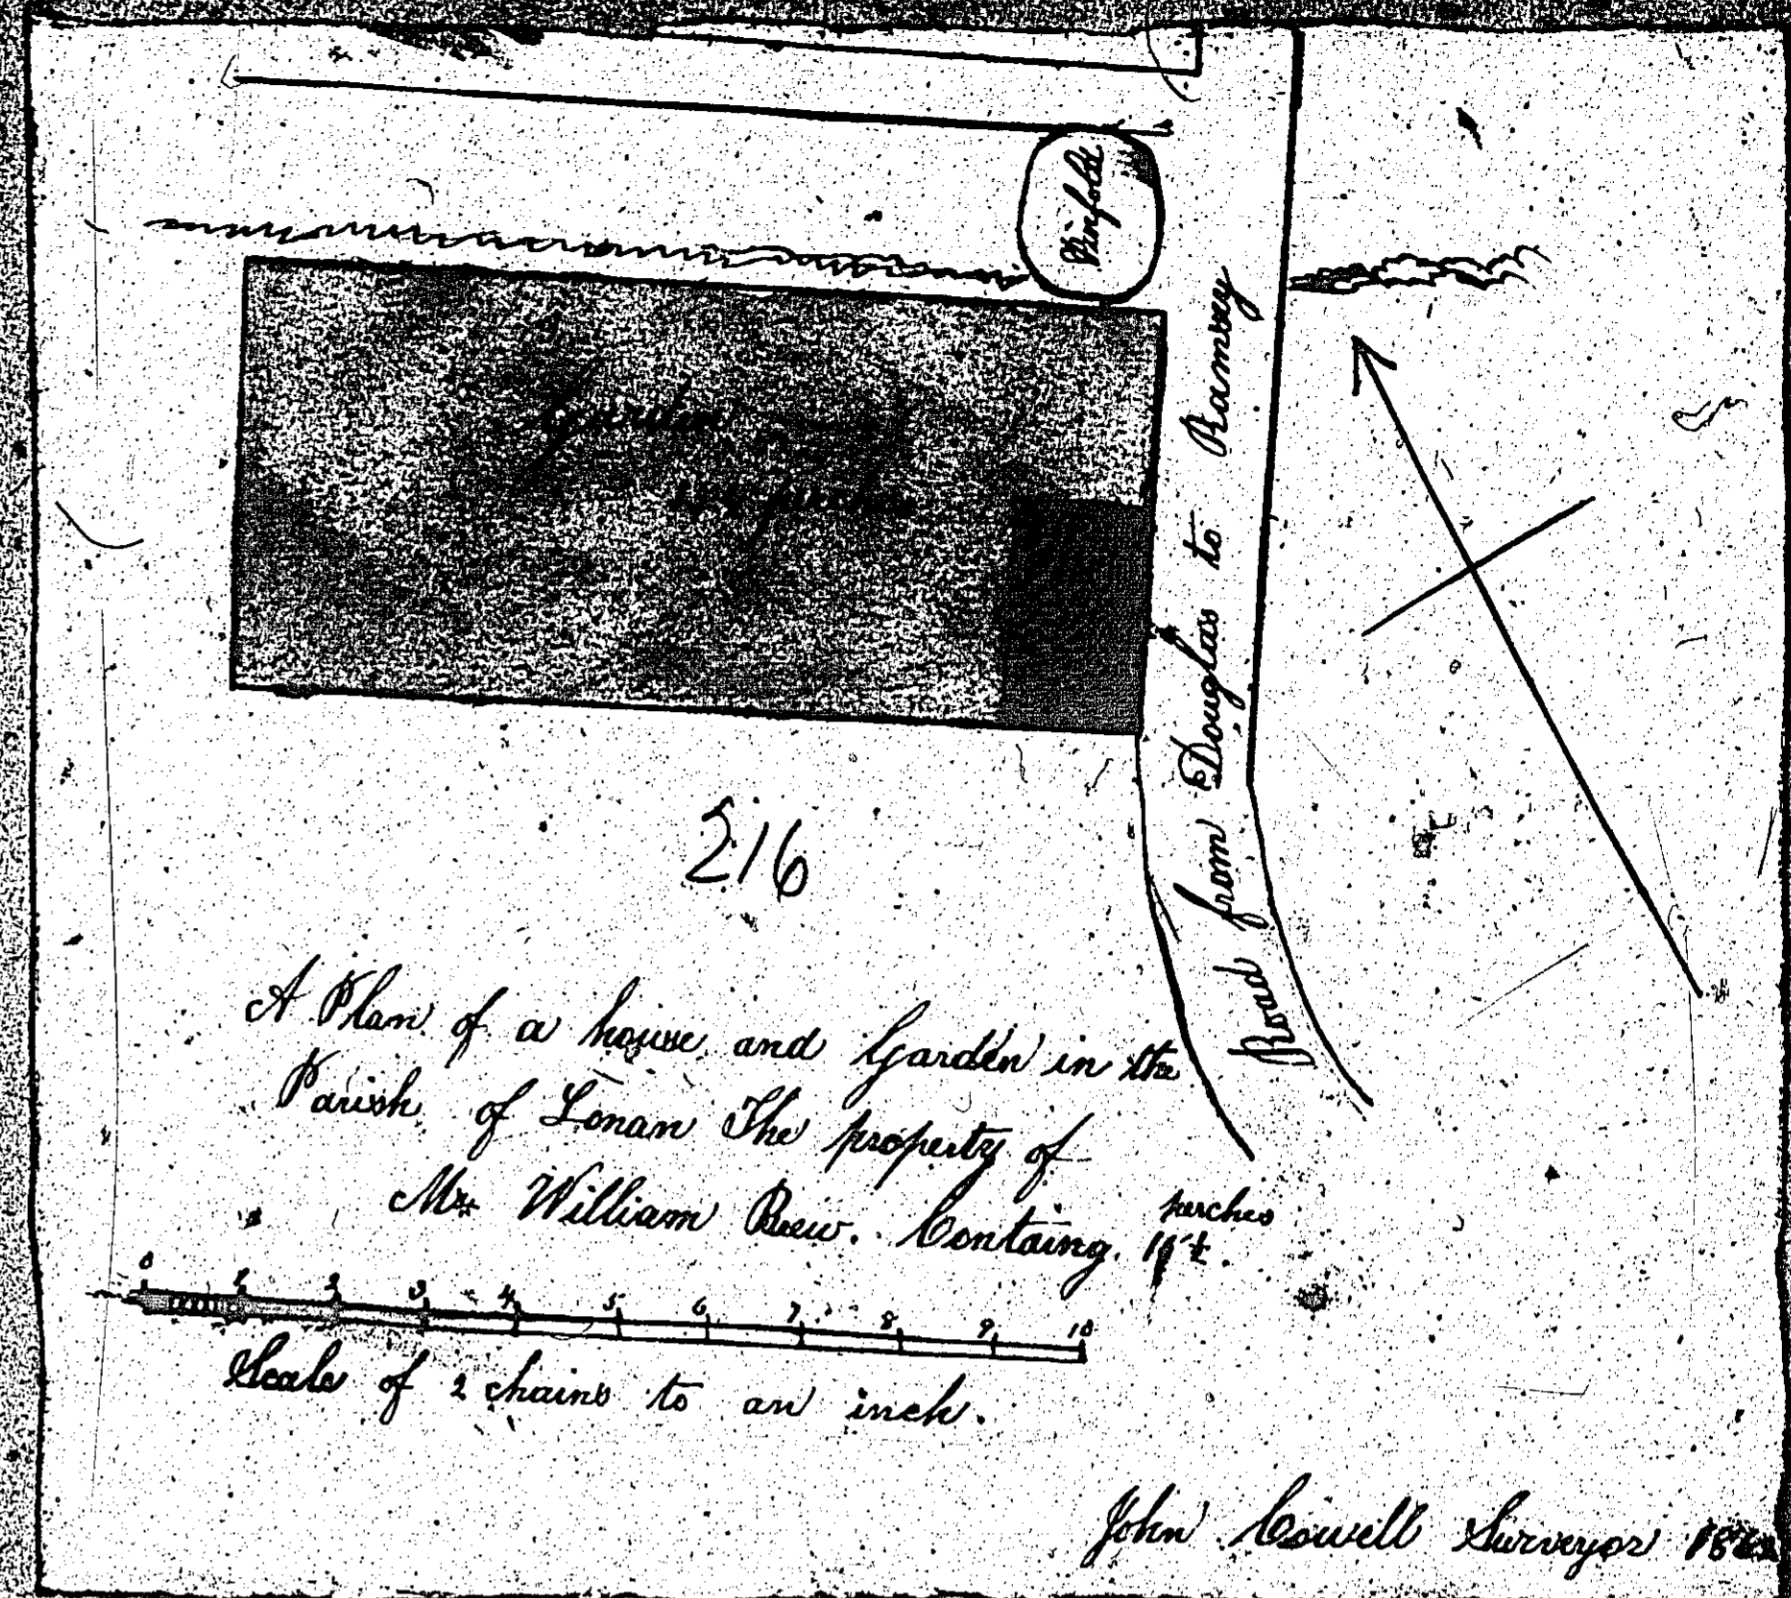 Pinfold
Garden
Road from Douglas to Ramsey
216
A Plan of a house and Garden in the
Parish of Lonan The property of
Mr William Brew. Containg. perches
0 1 2 3 4 5 6 7 8 9 10
Scale of 2 chains to an inch.
John Cowell Surveyor